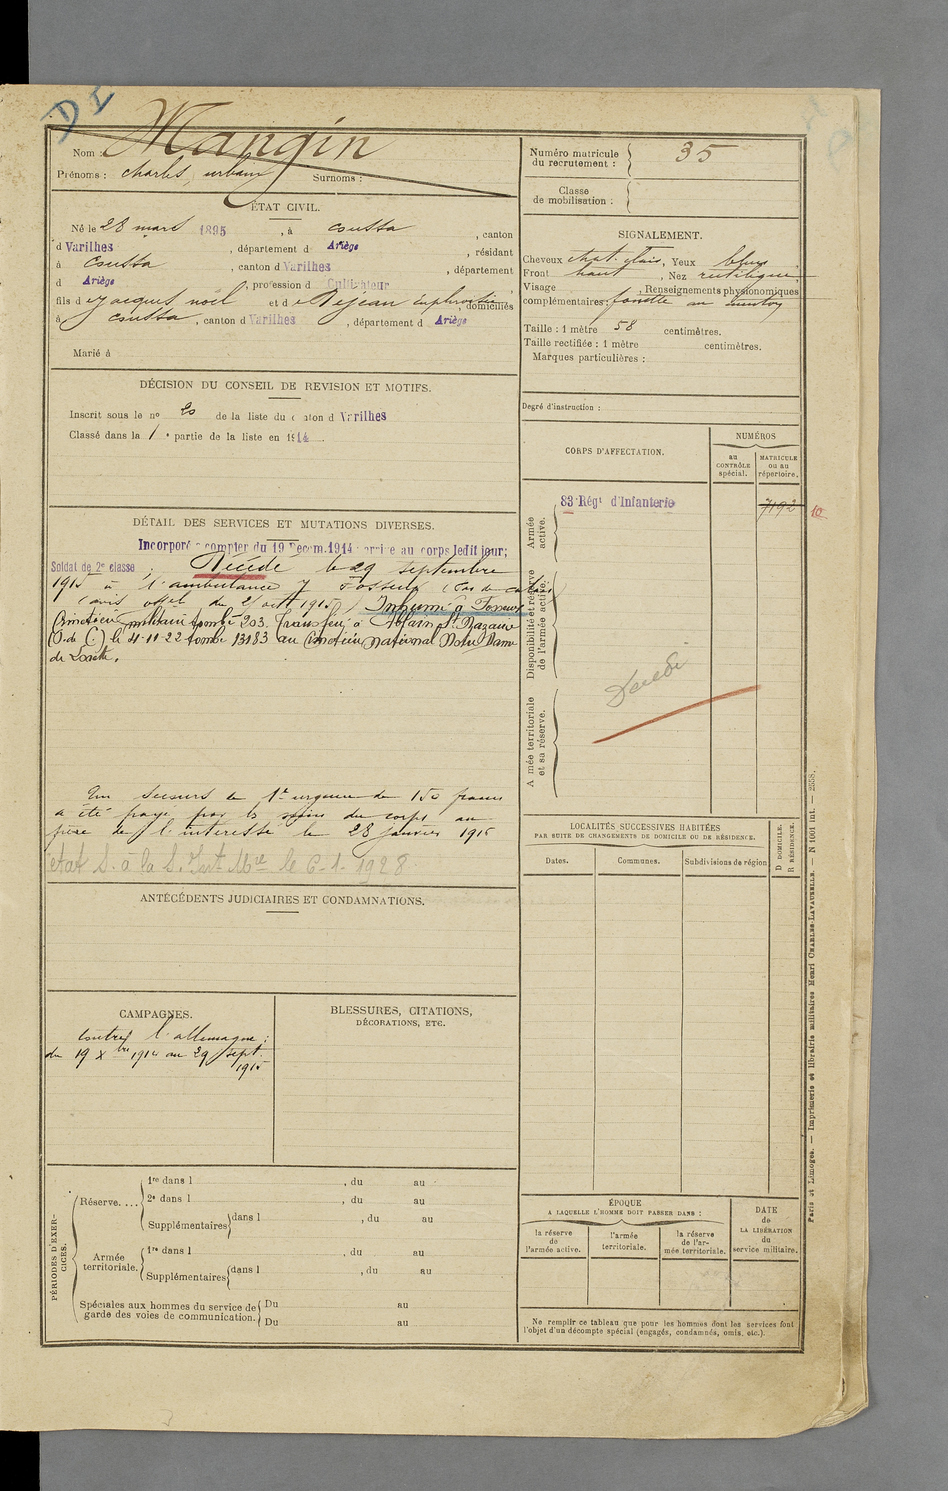 DI
Nom : Mangin
Prénoms : Charles, urbain Surnoms :
ÉTAT CIVIL.
Né le 28 mars 1895, à Coussa, canton
d Varilhes, département d Ariège, résidant
à Coussa, canton d Varilhes, département
d Ariège, profession d Cultivateur
fils d e Jacques noël et d e Rejean Euphrosine, domiciliés
à Coussa, canton d Varilhes, département d Ariège
Marié à
DÉCISION DU CONSEIL DE REVISION ET MOTIFS.
Inscrit sous le nº 20 de la liste du canton d Varilhes
Classé dans la 1re partie de la liste en 1914.
DÉTAIL DES SERVICES ET MUTATIONS DIVERSES.
Incorporé à compter du 19 Décem. 1914 arrivé au corps ledit jour;
Soldat de 2e classe Décédé le 29 septembre
1915 à l'ambulance 7 Fosseux (Pas de Calais)
(avis offel du 21 oct 1915) Inhumé à Fosseux
Cimetière militaire tombe 203. Transféré à Ablain St Nazaire
(P. de C) le 21-11-22 tombe 13183 au Cimetière National Notre Dame
de Lorette.
Un secours de 1re urgence de 150 francs
a été payé par les soins du corps au
père de l'intéressé le 28 janvier 1916
état S. à la S. Int. Mre le 6-1-1928
ANTÉCÉDENTS JUDICIAIRES ET CONDAMNATIONS.
CAMPAGNES.
Contre l'allemagne :
du 19 Xbre 1914 au 29 sept.
1915
BLESSURES, CITATIONS,
DÉCORATIONS, ETC.
PÉRIODES D'EXERCICES.
Réserve....
1re dans l , du au
2e dans l , du au
Supplémentaires dans l , du au
Armée territoriale.
1re dans l , du au
Supplémentaires dans l , du au
Spéciales aux hommes du service de garde des voies de communication.
Du au
Du au
Numéro matricule du recrutement : 35
Classe de mobilisation :
SIGNALEMENT.
Cheveux chat. clair, Yeux bleus
Front haut, Nez rectiligne
Visage , Renseignements physionomiques
complémentaires : fossette au menton
Taille : 1 mètre 58 centimètres.
Taille rectifiée : 1 mètre centimètres.
Marques particulières :
Degré d'instruction :
CORPS D'AFFECTATION.
NUMÉROS
au CONTRÔLE spécial.
MATRICULE ou au répertoire.
Armée active.
83e Régt d'Infanterie 7192 10
Disponibilité et réserve de l'armée active.
Décédé
Armée territoriale et sa réserve.
LOCALITÉS SUCCESSIVES HABITÉES
PAR SUITE DE CHANGEMENTS DE DOMICILE OU DE RÉSIDENCE.
Dates. Communes. Subdivisions de région
D DOMICILE.
R RÉSIDENCE.
ÉPOQUE
A LAQUELLE L'HOMME DOIT PASSER DANS :
la réserve de l'armée active.
l'armée territoriale.
la réserve de l'armée territoriale.
DATE de LA LIBÉRATION du service militaire.
Ne remplir ce tableau que pour les hommes dont les services font
l'objet d'un décompte spécial (engagés, condamnés, omis, etc.).
Paris et Limoges. — Imprimerie et librairie militaires Henri CHARLES-LAVAUZELLE. — N 1001 int. — 2558.